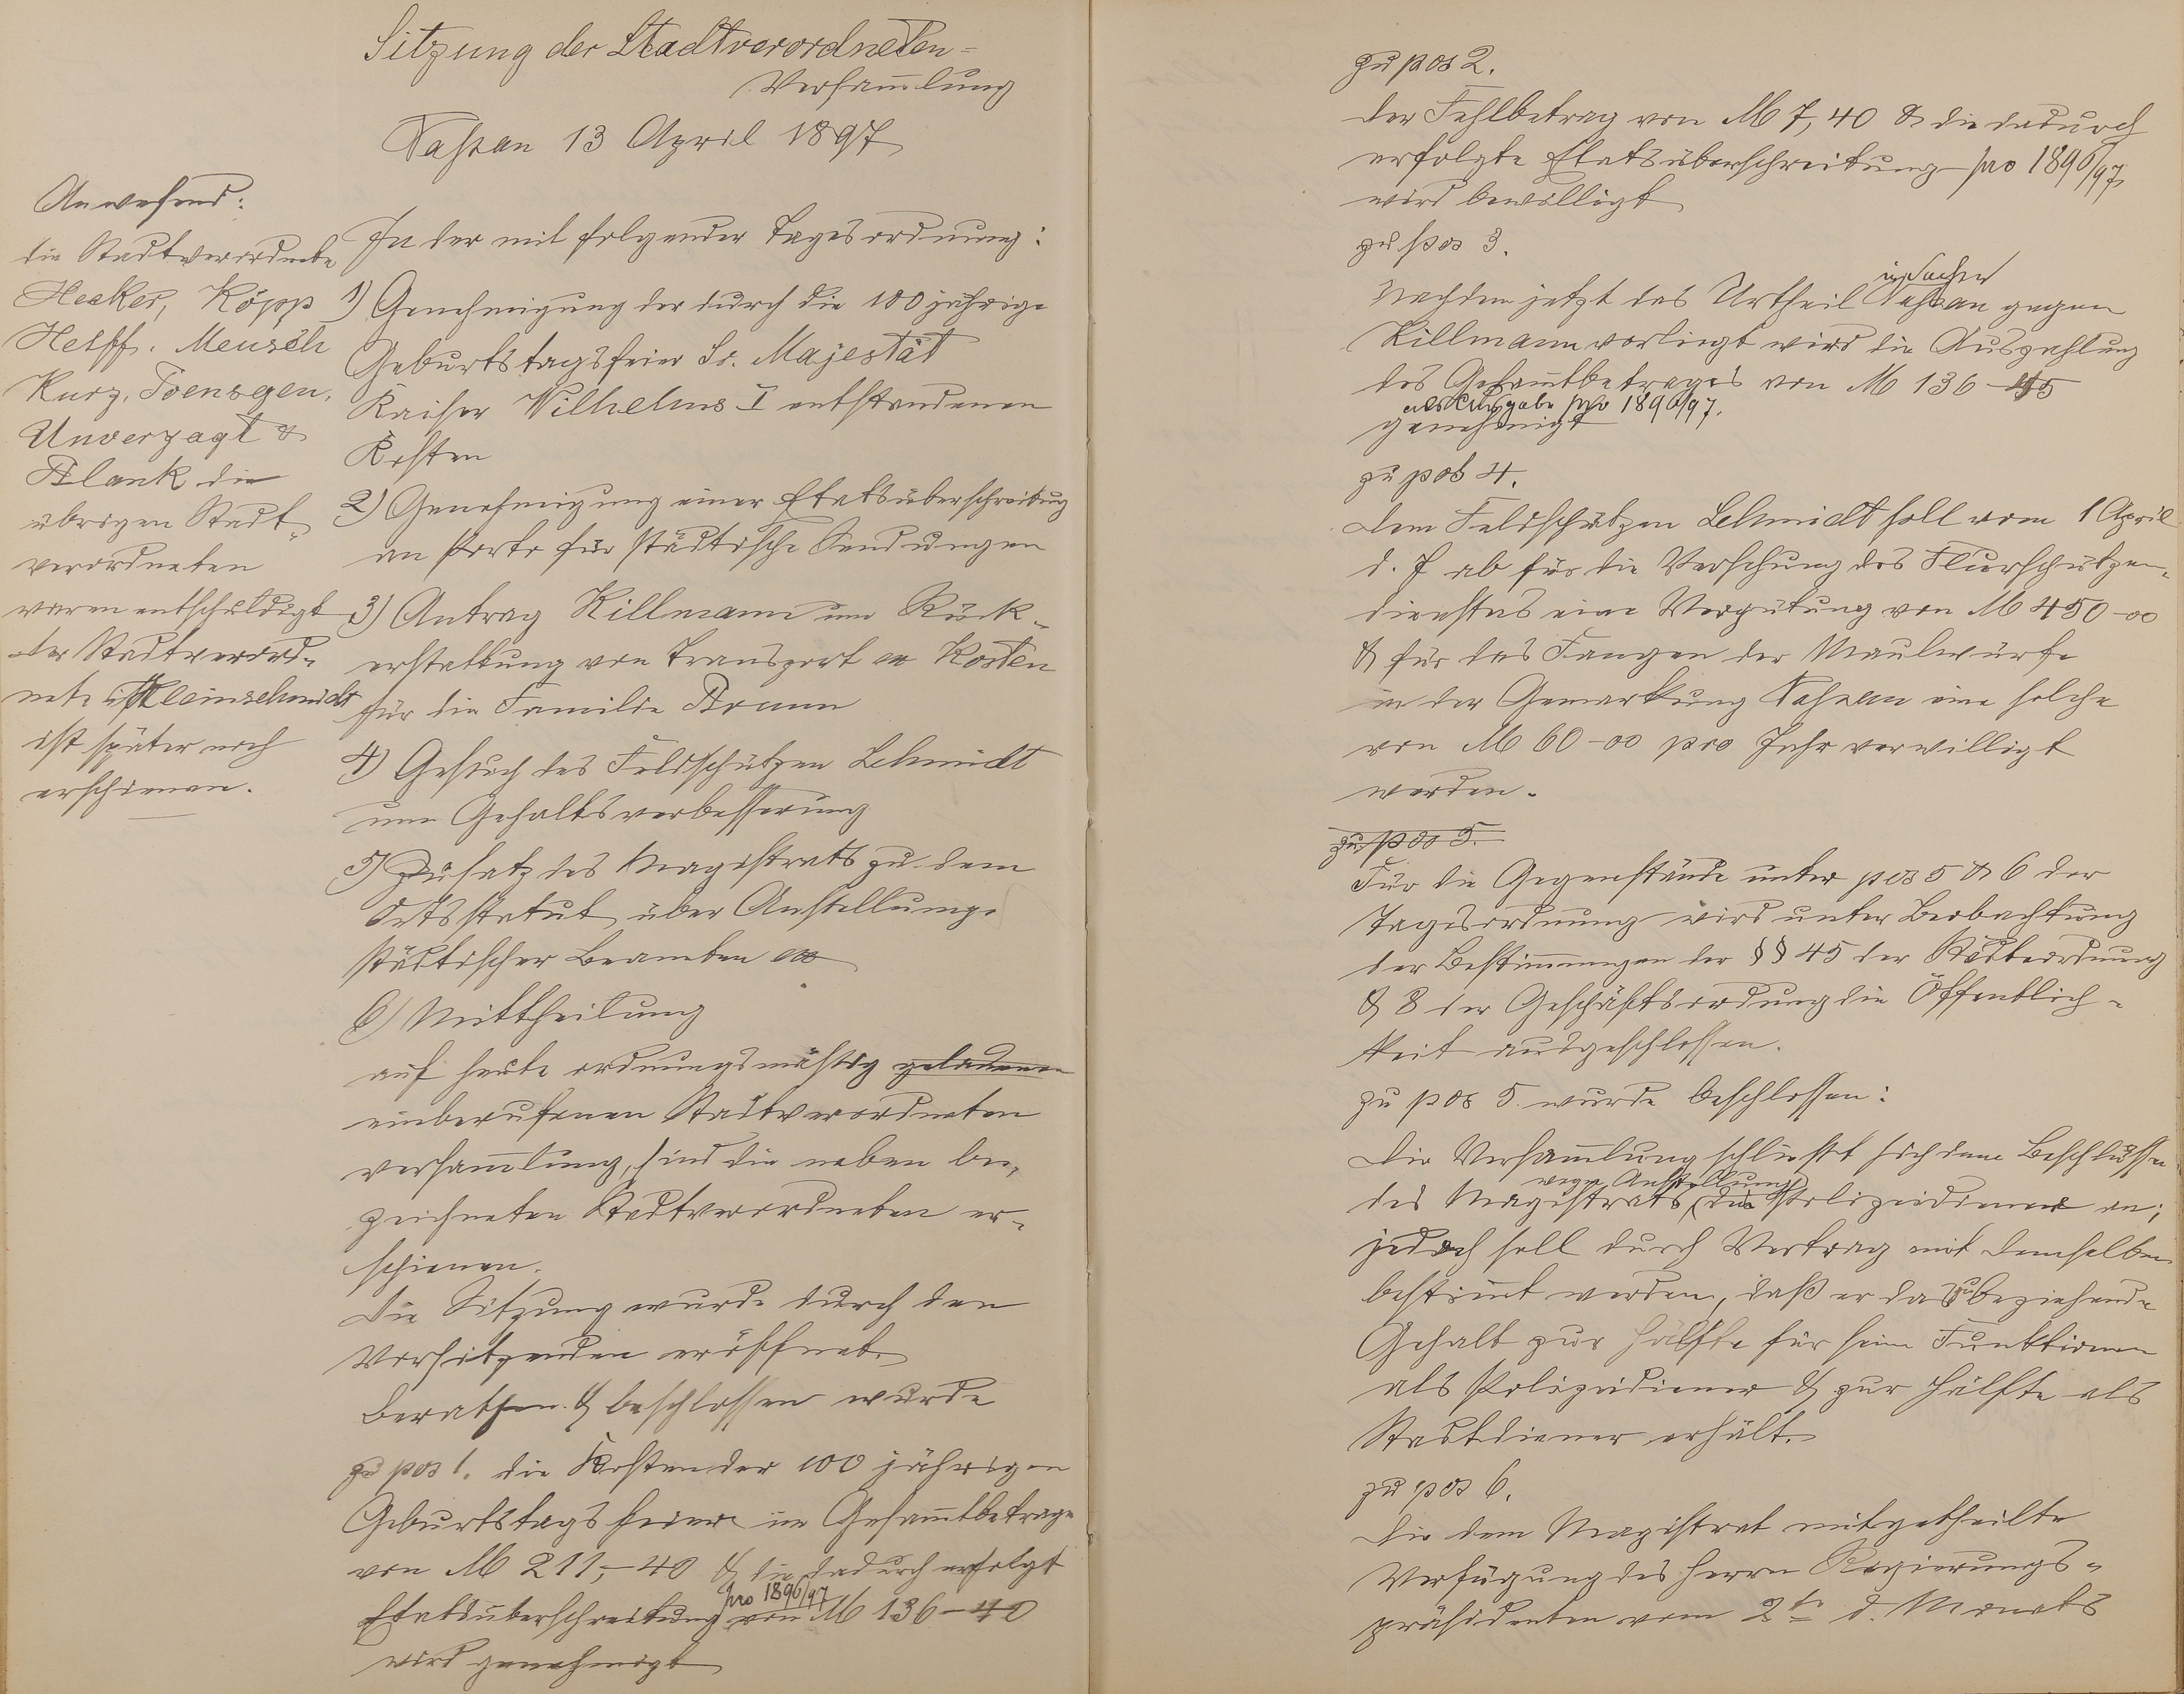 Sitzung der Stadtverordneten-
Versam̄lung
Nassau 13 April 1897
Anwesend:
die Stadtverordnete
Hecker, Köpp
Helff. Meusch
Kurz, Toensgen,
Unverzagt &
Plank die
übrigen Stadt-
verordneten
waren entschuldigt
der Stadtverord-
nete Kleinschmidt
ist später noch
erschienen.
In der mit folgender Tagesordnung:
1) Genehmigung der durch die 100 jährige
Geburtstagsfeier Sr. Majestät
Kaiser Wilhelms I entstandenen
Kosten
2) Genehmigung einer Etatsüberschreitung
an Porto für städtische Sendungen
3) Antrag Killmann um Rück-
erstattung von Transport Kosten
für die Familie Braun
4) Gesuch des Feldschützen Schmidt
um Gehaltsverbesserung
5) Zusatz des Magistrats zu dem
Ortsstatut über Anstellung
städtischer Beamten
6) Mittheilung
auf heute ordnungsmäßig geladenen
einberufenen Stadtverordneten
versam̄lung, sind die neben be-
zeichneten Stadtverordneten er-
schienen.
Die Sitzung wurde durch den
Vorsitzenden eröffnet.
Berathen & beschlossen wurde
zu pos 1. die Kosten der 100 jährigen
Geburtstagsfeier im Gesam̄tbetrage
von M 211,-40 & die dadurch erfolgt
Etatsüberschreitung pro 1896/97 von M 136-40
wird genehmigt
zu pos 2.
Der Fehlbetrag von M 7,40 & die dadurch
erfolgte Etatsüberschreitung pro 1896/97
wird bewilligt
zu pos 3.
Nachdem jetzt das Urtheil in Sachen Nassau gegen
Killmann vorliegt wird die Auszahlung
des Gesam̄tbetrages von M 136-45
als Ausgabe pro 1896/97.
genehmigt
zu pos 4.
Dem Feldschützen Schmidt soll vom 1 April
d. J ab für die Versehung des Flurschützen-
dienstes eine Vergütung von M 450-00
& für das Fangen der Maulwürfe
in der Gemarkung Nassau eine solche
von M 60-00 pro Jahr verwilligt
werden.
zu pos 5.
Für die Gegenstände unter pos 5 & 6 der
Tagesordnung wird unter Beobachtung
der Bestim̄mungen der §§ 45 der Städteordnung
& 8 der Geschäftsordung die Öffentlich-
keit ausgeschlossen.
zu pos 5. wurde beschlossen:
Die Versam̄lung schließt sich dem Beschlusse
des Magistrats wegen Anstellung des Polizeidieners an;
jedoch soll durch Vertrag mit demselben
bestim̄t werden, daß er das zu beziehende
Gehalt zur Hälfte für seine Funktionen
als Polizeidiener & zur Hälfte als
Stadtdiener erhält.
zu pos 6.
Die dem Magistrat mitgetheilte
Verfügung des Herrn Regierungs-
präsidenten vom 2ten d. Monats